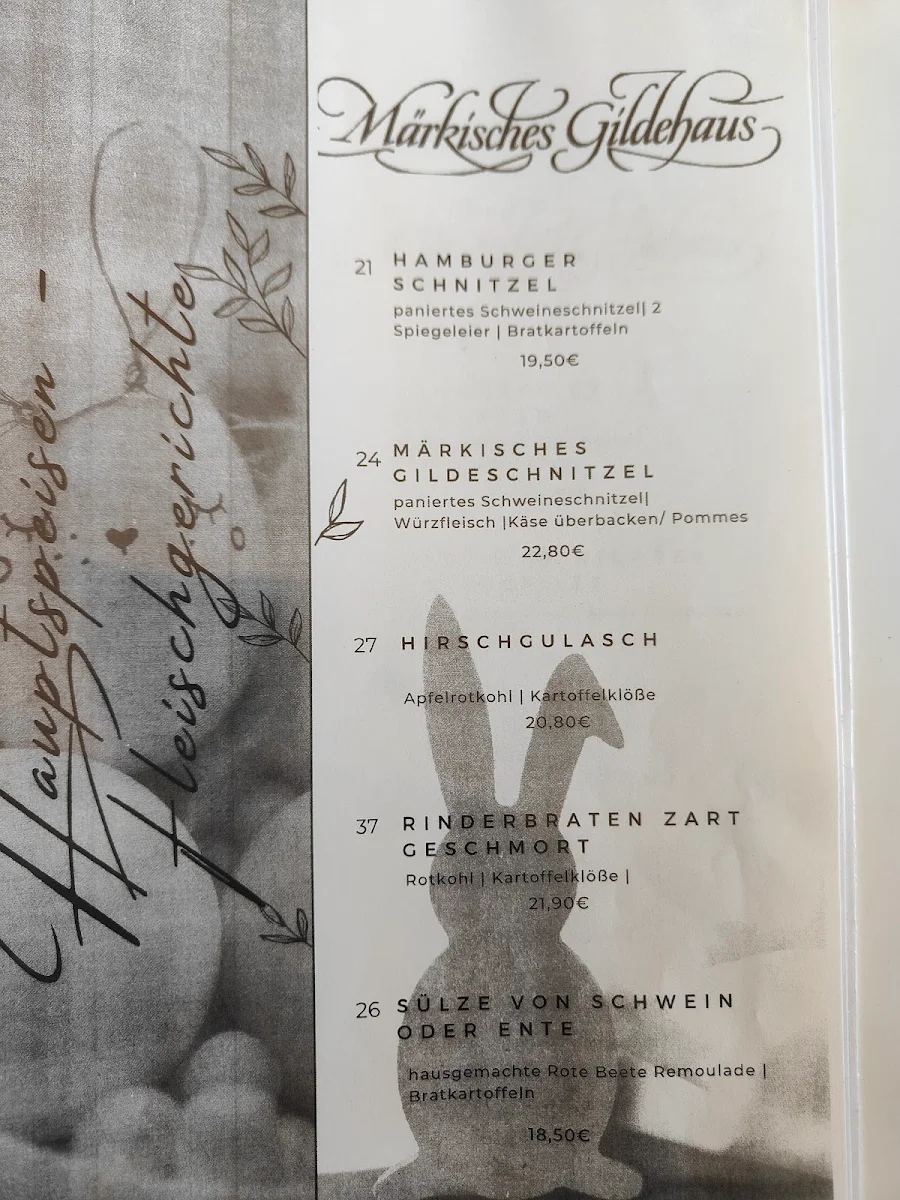 Hauptspeisen -
Fleischgerichte
Märkisches Gildehaus
21 HAMBURGER
SCHNITZEL
paniertes Schweineschnitzel| 2
Spiegeleier | Bratkartoffeln
19,50€
24 MÄRKISCHES
GILDESCHNITZEL
paniertes Schweineschnitzel|
Würzfleisch |Käse überbacken/ Pommes
22,80€
27 HIRSCHGULASCH
Apfelrotkohl | Kartoffelklöße
20,80€
37 RINDERBRATEN ZART
GESCHMORT
Rotkohl | Kartoffelklöße |
21,90€
26 SÜLZE VON SCHWEIN
ODER ENTE
hausgemachte Rote Beete Remoulade |
Bratkartoffeln
18,50€